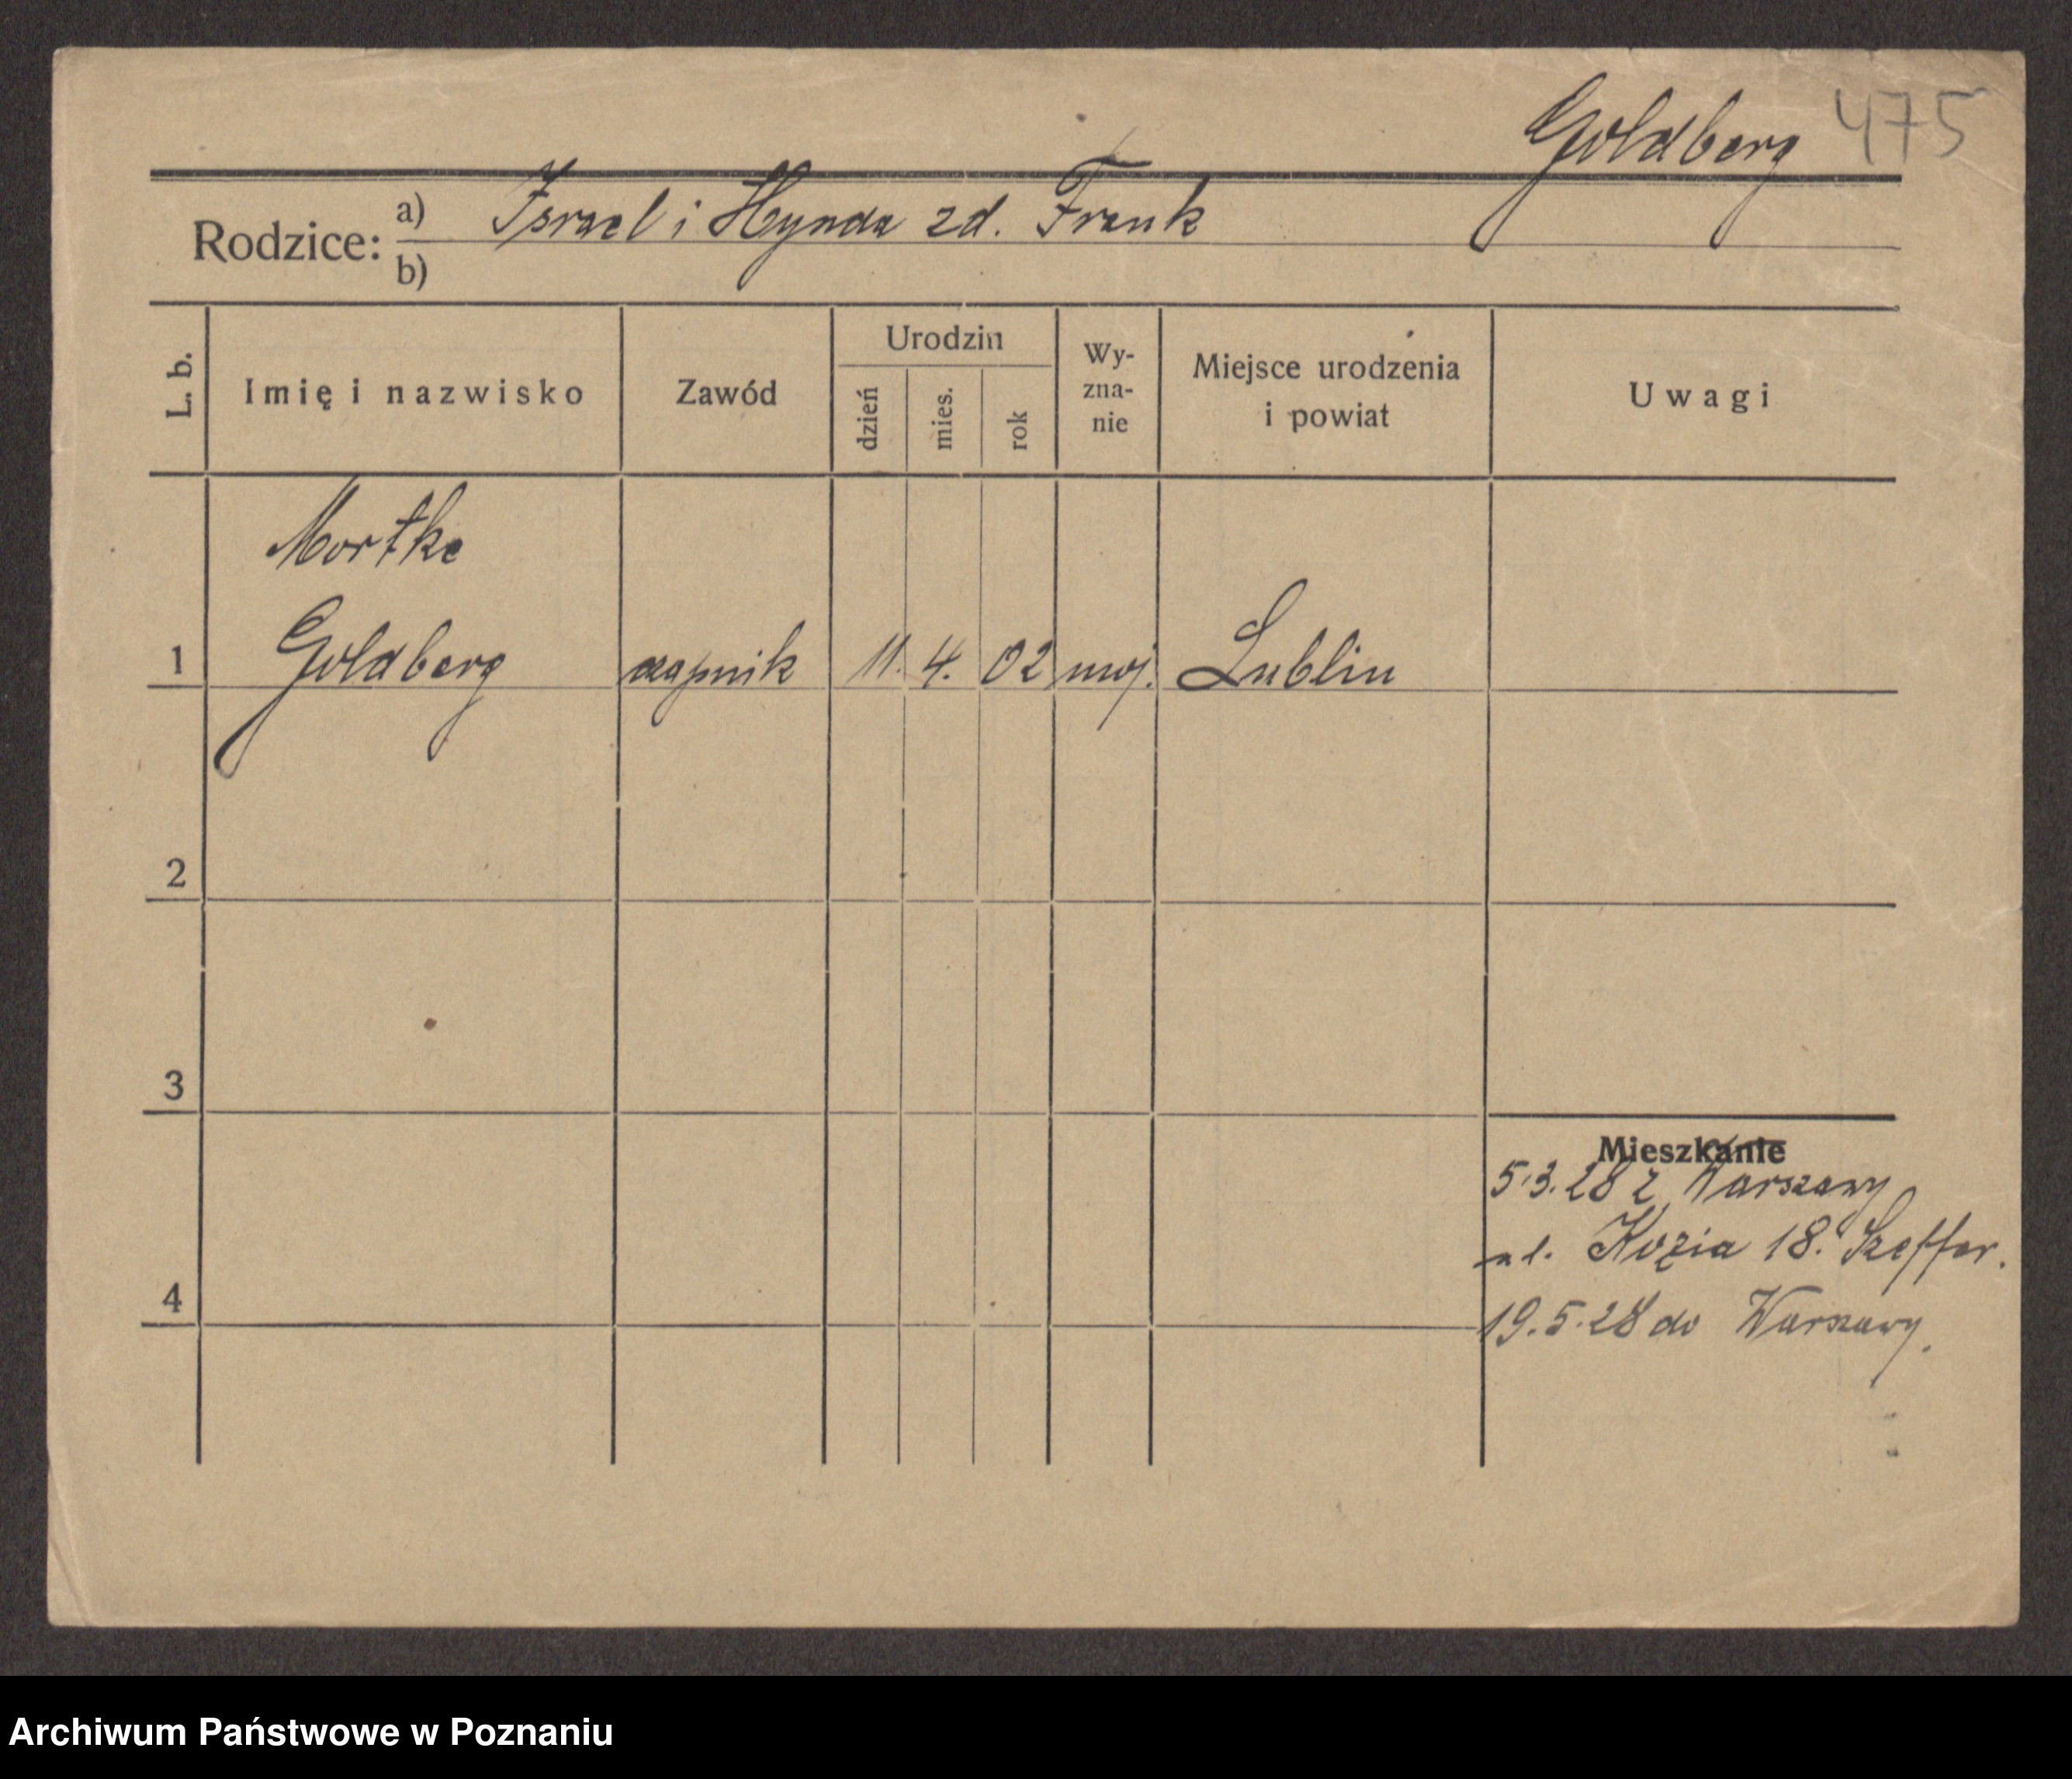 Goldberg 475
Rodzice: a) Israel i Hynda zd. Frank
b)
L. b. Imię i nazwisko Zawód Urodzin dzień mies. rok Wy-zna-nie Miejsce urodzenia i powiat Uwagi
Mortke
1 Goldberg czapnik 11. 4. 02 moj. Lublin
2
3
Mieszkanie
5.3.28 z Warszawy
ul. Kozia 18. Szeffer.
4
19.5.28 do Warszawy.
Archiwum Państwowe w Poznaniu